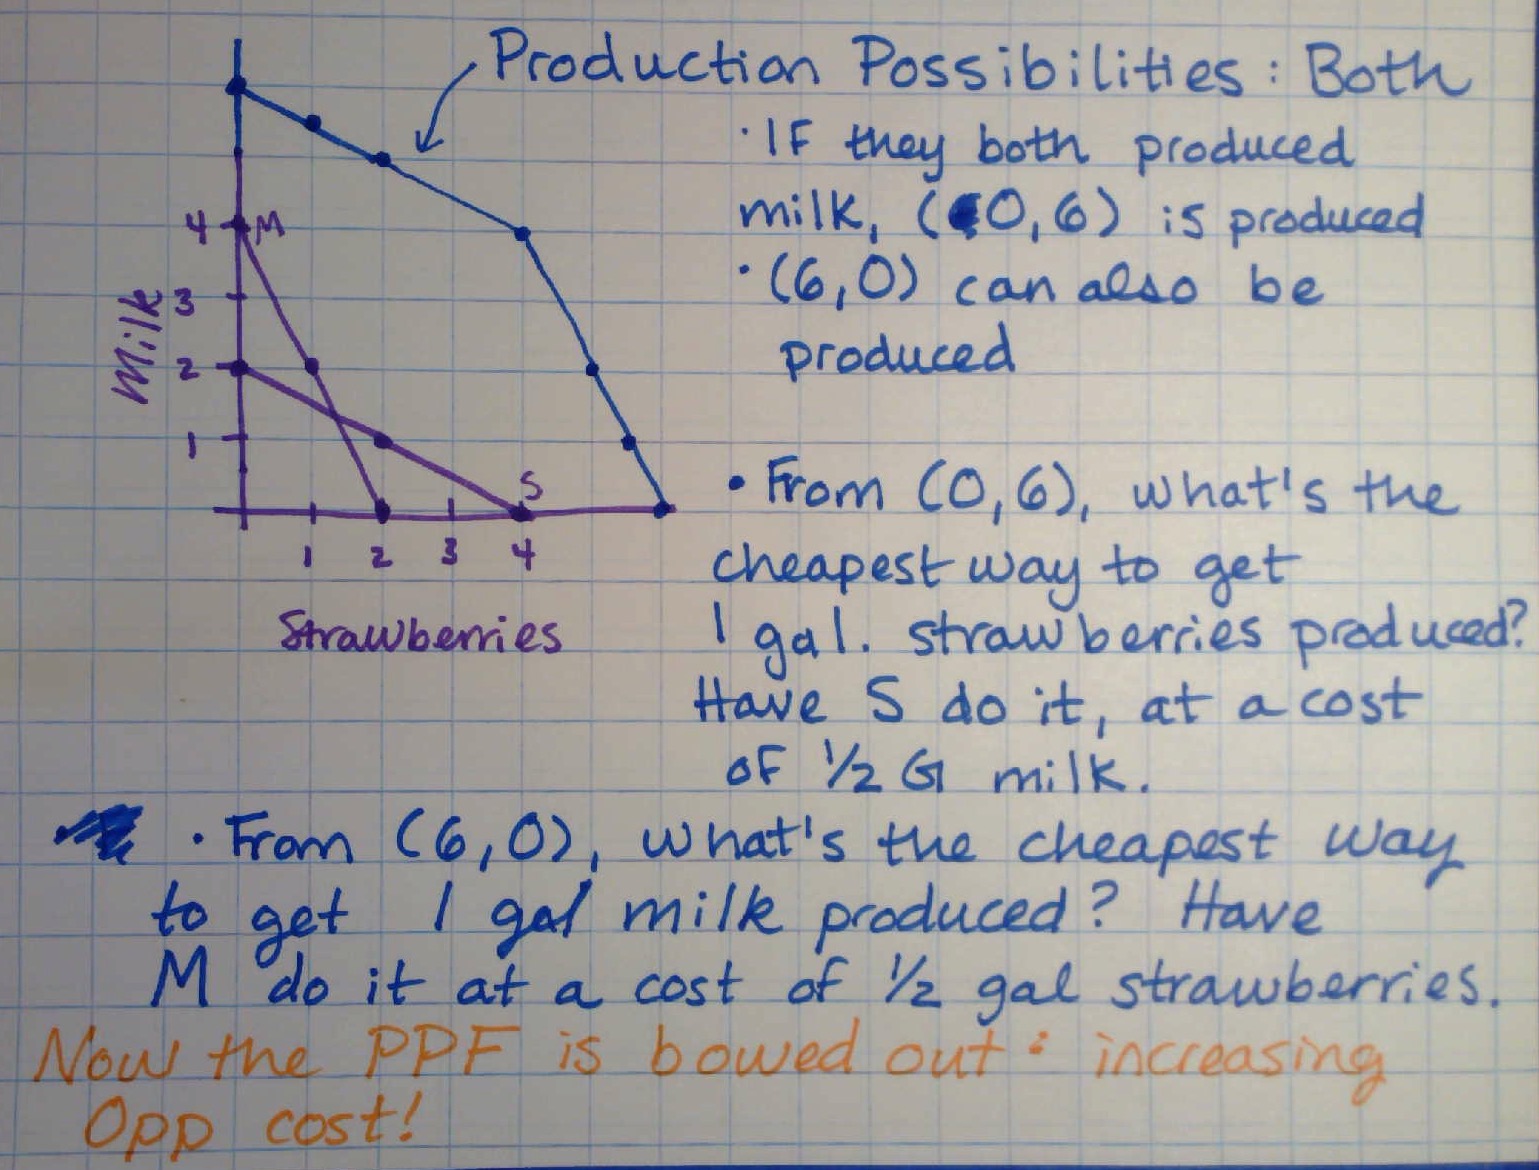 Production Possibilities: Both
· IF they both produced
milk, (0,6) is produced
· (6,0) can also be
produced
4 M
3
Milk
2
1
S
1 2 3 4
Strawberries
• From (0,6), what's the
cheapest way to get
1 gal. strawberries produced?
Have S do it, at a cost
of 1/2 G milk.
· From (6,0), what's the cheapest way
to get 1 gal milk produced? Have
M do it at a cost of 1/2 gal strawberries.
Now the PPF is bowed out: increasing
Opp cost!